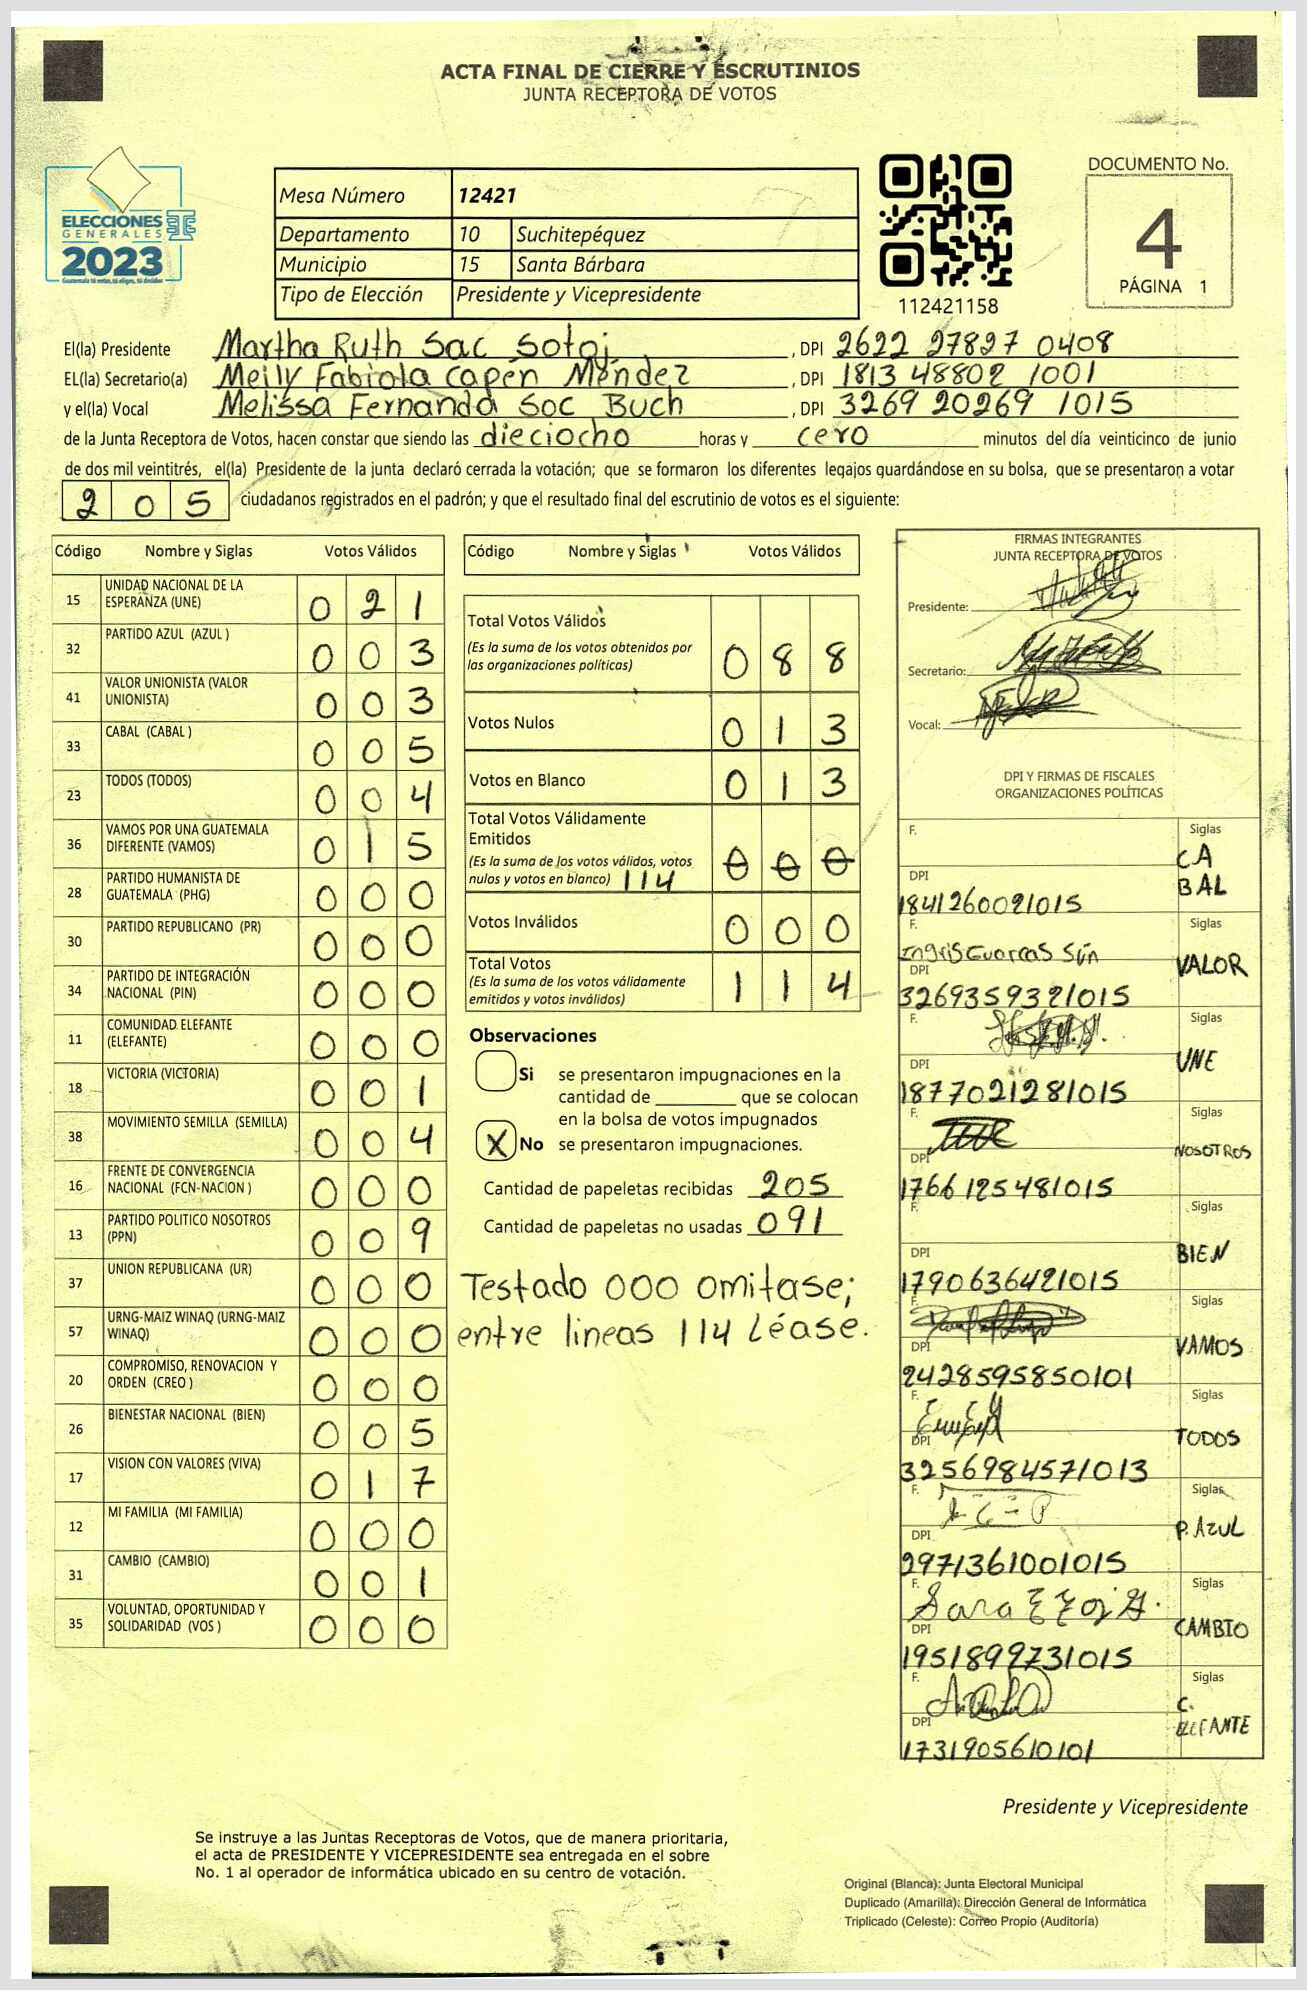 ACTA FINAL DE CIERRE Y ESCRUTINIOS
JUNTA RECEPTORA DE VOTOS
ELECCIONES
GENERALES
2023
Mesa Número 12421
Departamento 10 Suchitepéquez
Municipio 15 Santa Bárbara
Tipo de Elección Presidente y Vicepresidente
112421158
DOCUMENTO No.
4
PÁGINA 1
El(la) Presidente Martha Ruth Sac Sotoj, DPI 2622 27827 0408
EL(la) Secretario(a) Meily Fabiola Capén Méndez, DPI 1813 48802 1001
y el(la) Vocal Melissa Fernanda Soc Buch, DPI 3269 20269 1015
de la Junta Receptora de Votos, hacen constar que siendo las dieciocho horas y cero minutos del día veinticinco de junio
de dos mil veintitrés, el(la) Presidente de la junta declaró cerrada la votación; que se formaron los diferentes legajos guardándose en su bolsa, que se presentaron a votar
205 ciudadanos registrados en el padrón; y que el resultado final del escrutinio de votos es el siguiente:
Código Nombre y Siglas Votos Válidos
15 UNIDAD NACIONAL DE LA ESPERANZA (UNE) 0 2 1
32 PARTIDO AZUL (AZUL ) 0 0 3
41 VALOR UNIONISTA (VALOR UNIONISTA) 0 0 3
33 CABAL (CABAL ) 0 0 5
23 TODOS (TODOS) 0 0 4
36 VAMOS POR UNA GUATEMALA DIFERENTE (VAMOS) 0 1 5
28 PARTIDO HUMANISTA DE GUATEMALA (PHG) 0 0 0
30 PARTIDO REPUBLICANO (PR) 0 0 0
34 PARTIDO DE INTEGRACIÓN NACIONAL (PIN) 0 0 0
11 COMUNIDAD ELEFANTE (ELEFANTE) 0 0 0
18 VICTORIA (VICTORIA) 0 0 1
38 MOVIMIENTO SEMILLA (SEMILLA) 0 0 4
16 FRENTE DE CONVERGENCIA NACIONAL (FCN-NACION ) 0 0 0
13 PARTIDO POLITICO NOSOTROS (PPN) 0 0 9
37 UNION REPUBLICANA (UR) 0 0 0
57 URNG-MAIZ WINAQ (URNG-MAIZ WINAQ) 0 0 0
20 COMPROMISO, RENOVACION Y ORDEN (CREO ) 0 0 0
26 BIENESTAR NACIONAL (BIEN) 0 0 5
17 VISION CON VALORES (VIVA) 0 1 7
12 MI FAMILIA (MI FAMILIA) 0 0 0
31 CAMBIO (CAMBIO) 0 0 1
35 VOLUNTAD, OPORTUNIDAD Y SOLIDARIDAD (VOS ) 0 0 0
Código Nombre y Siglas Votos Válidos
Total Votos Válidos
(Es la suma de los votos obtenidos por
las organizaciones políticas) 0 8 8
Votos Nulos 0 1 3
Votos en Blanco 0 1 3
Total Votos Válidamente
Emitidos
(Es la suma de los votos válidos, votos
nulos y votos en blanco) 114 0 0 0
Votos Inválidos 0 0 0
Total Votos
(Es la suma de los votos válidamente
emitidos y votos inválidos) 1 1 4
Observaciones
Si se presentaron impugnaciones en la
cantidad de ________ que se colocan
en la bolsa de votos impugnados
X No se presentaron impugnaciones.
Cantidad de papeletas recibidas 205
Cantidad de papeletas no usadas 091
Testado 000 omitase;
entre lineas 114 Léase.
FIRMAS INTEGRANTES
JUNTA RECEPTORA DE VOTOS
Presidente:
Secretario:
Vocal:
DPI Y FIRMAS DE FISCALES
ORGANIZACIONES POLÍTICAS
F. Siglas
CA
BAL
DPI
1841260021015
F. Siglas
VALOR
DPI
3269359321015
F. Siglas
UNE
DPI
1877021281015
F. Siglas
NOSOTROS
DPI
1766125481015
F. Siglas
BIEN
DPI
1790636421015
F. Siglas
VAMOS
DPI
2428595850101
F. Siglas
TODOS
DPI
3256984571013
F. Siglas
P. AZUL
DPI
2971361001015
F. Sara Siglas
CAMBIO
DPI
1951899731015
F. Siglas
C.
ELEFANTE
DPI
1731905610101
Presidente y Vicepresidente
Se instruye a las Juntas Receptoras de Votos, que de manera prioritaria,
el acta de PRESIDENTE Y VICEPRESIDENTE sea entregada en el sobre
No. 1 al operador de informática ubicado en su centro de votación.
Original (Blanca): Junta Electoral Municipal
Duplicado (Amarilla): Dirección General de Informática
Triplicado (Celeste): Correo Propio (Auditoría)